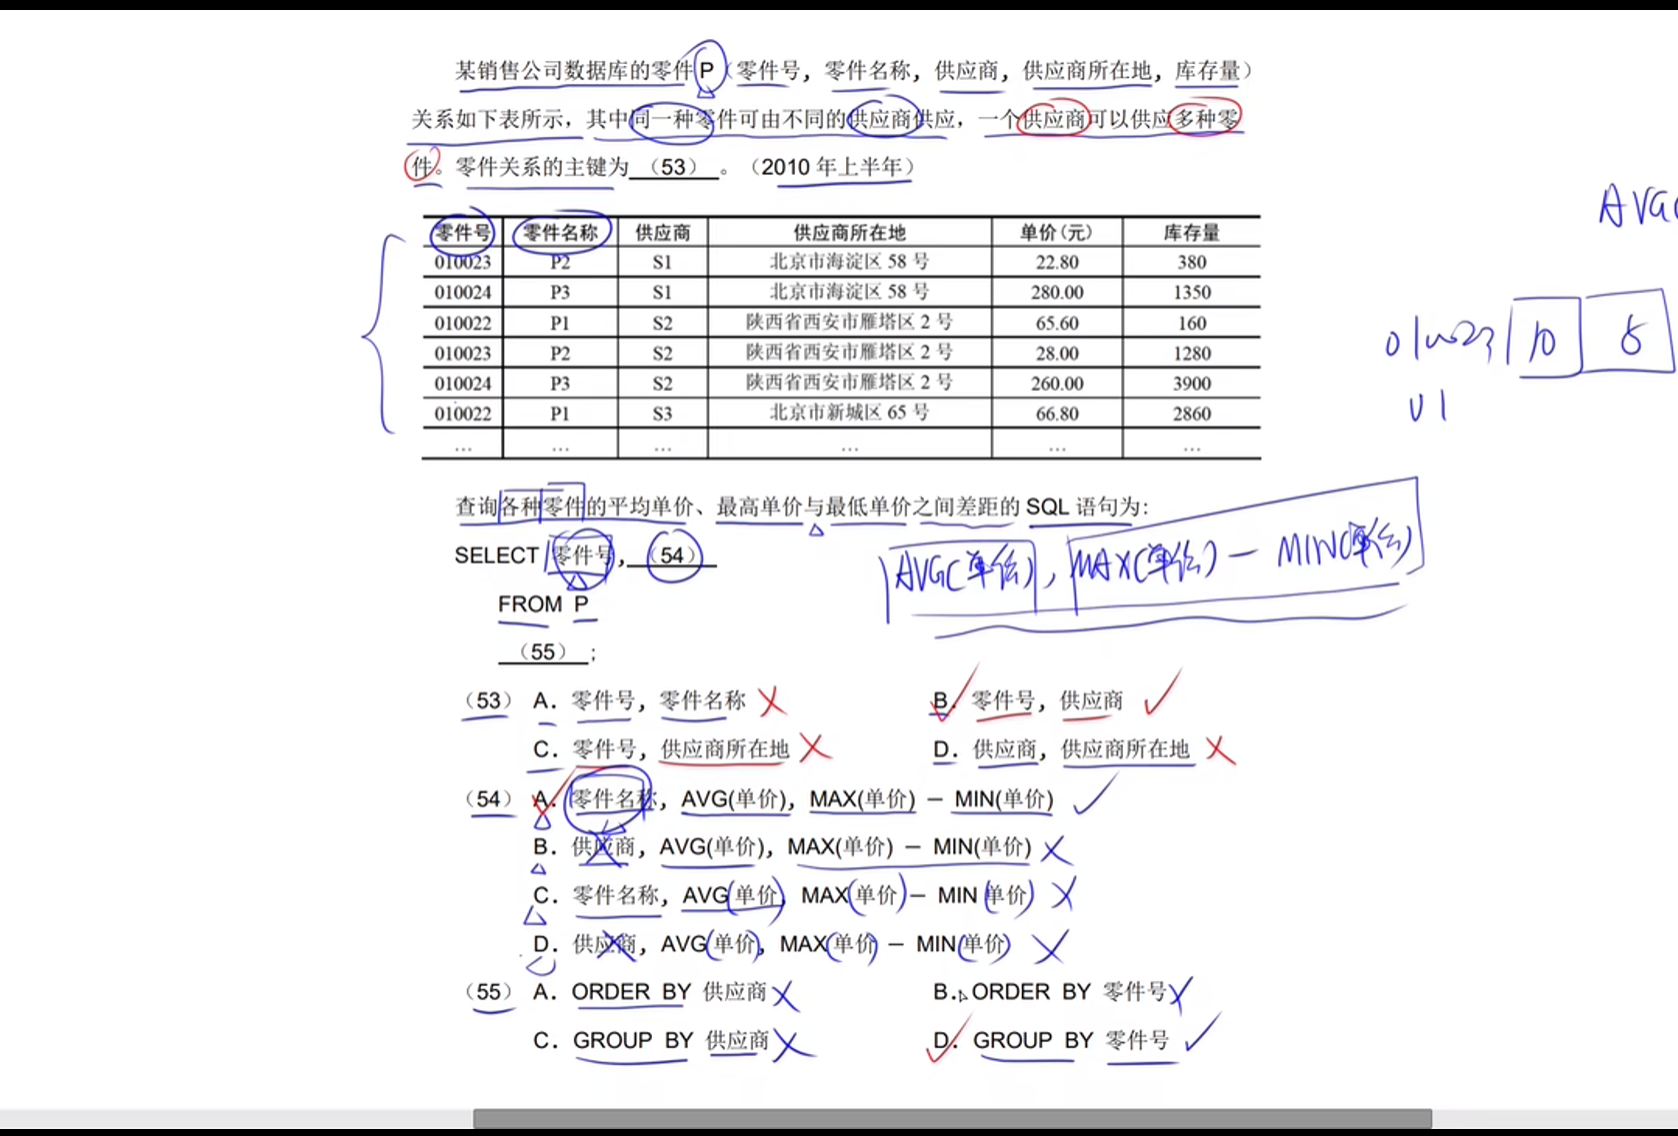 某销售公司数据库的零件P（零件号，零件名称，供应商，供应商所在地，库存量）
关系如下表所示，其中同一种零件可由不同的供应商供应，一个供应商可以供应多种零
件。零件关系的主键为（53）。（2010年上半年）
AVG(
零件号 零件名称 供应商 供应商所在地 单价(元) 库存量
010023 P2 S1 北京市海淀区58号 22.80 380
010024 P3 S1 北京市海淀区58号 280.00 1350
010022 P1 S2 陕西省西安市雁塔区2号 65.60 160
010023 P2 S2 陕西省西安市雁塔区2号 28.00 1280
010024 P3 S2 陕西省西安市雁塔区2号 260.00 3900
010022 P1 S3 北京市新城区65号 66.80 2860
… … … … … …
10
查询各种零件的平均单价、最高单价与最低单价之间差距的SQL语句为：
SELECT 零件号，（54）
AVG(单价), MAX(单价) — MIN(单价)
FROM P
（55）；
（53）A. 零件号，零件名称 B. 零件号，供应商
C. 零件号，供应商所在地 D. 供应商，供应商所在地
（54）A. 零件名称，AVG(单价)，MAX(单价) － MIN(单价)
B. 供应商，AVG(单价)，MAX(单价) － MIN(单价)
C. 零件名称，AVG(单价) MAX(单价)－ MIN (单价)
D. 供应商，AVG(单价)，MAX(单价) － MIN(单价)
（55）A. ORDER BY 供应商 B. ORDER BY 零件号
C. GROUP BY 供应商 D. GROUP BY 零件号